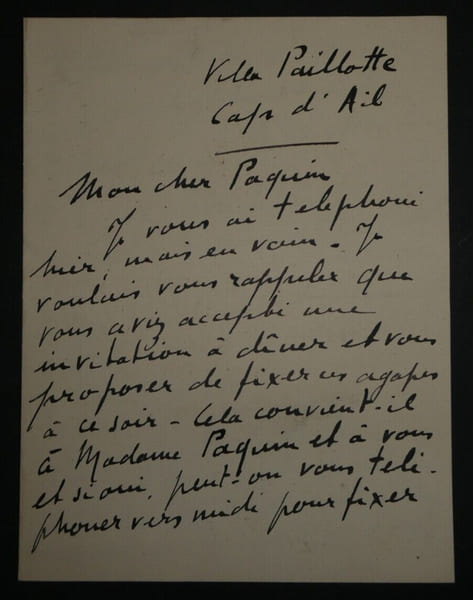 Villa Paillotte
Cap d'Ail
Mon cher Paquin
Je vous ai telephoné
hier, mais en vain. Je
voulais vous rappeler que
vous aviez accepté une
invitation à dîner et vous
proposer de fixer ces agapes
à ce soir - Cela convient-il
à Madame Paquin et à vous
et si oui, peut-on vous télé-
phoner vers midi pour fixer